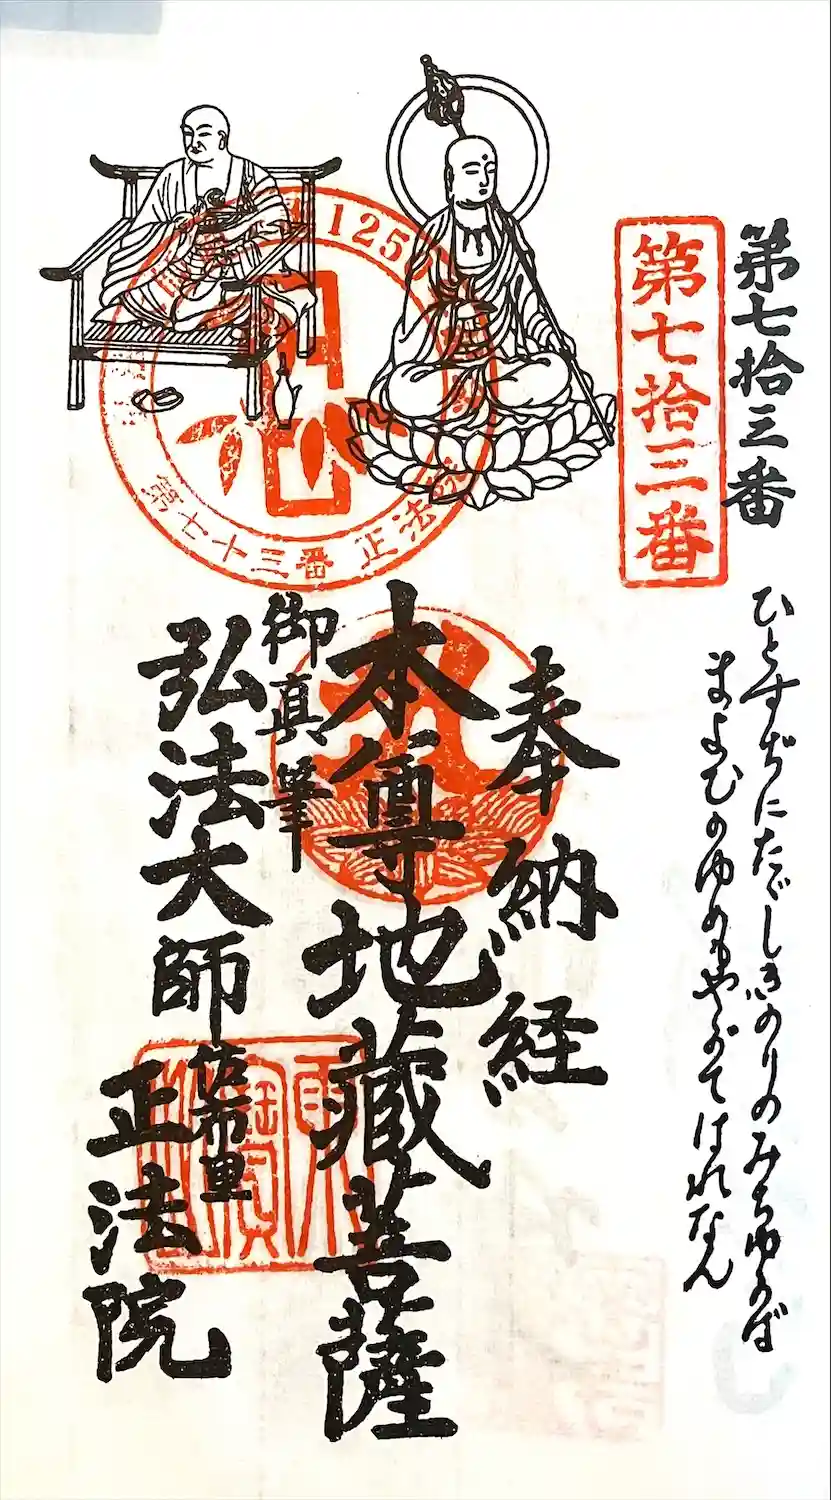 第七拾三番
ひとすぢにたゞしきのりのみちゆかば
まよひのゆめもやがてはれなん
第七拾三番
奉納経
本尊地蔵菩薩
御真筆
弘法大師
佐布里
正法院
125
第七十三番 正法院